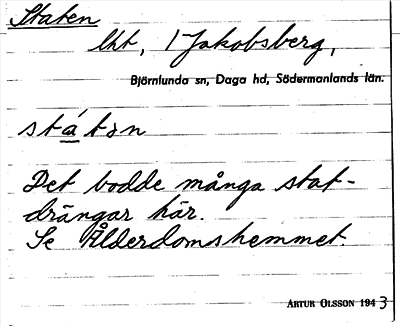 Staten
lht, 1 Jakobsberg,
Björnlunda sn, Daga hd, Södermanlands län.
státən
Det bodde många stat-
drängar här.
Se Ålderdomshemmet.
ARTUR OLSSON 1943